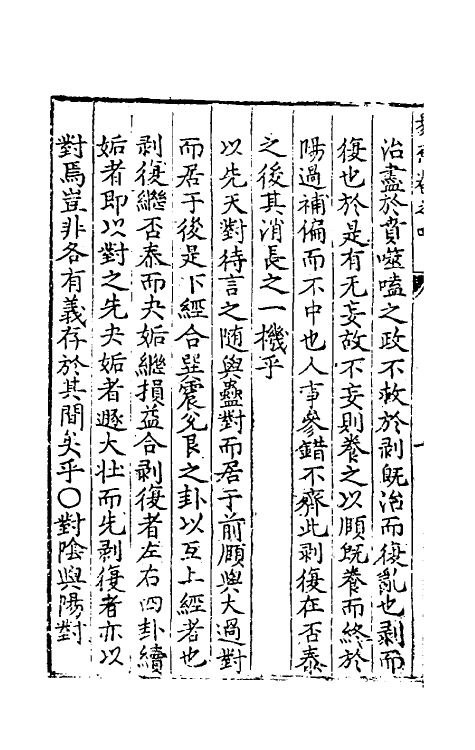 治盡於賁噬嗑之政不救於剥旣治而復亂也剥而
復也於是有无妄故不妄則養之以頤旣養而終於
陽過補偏而不中也人事參錯不齊此剥復在否泰
之後其消長之一機乎
以先天對待言之随與蠱對而居于前頤與大過對
而居于後是下經合巽震兌艮之卦以互上經者也
剥復繼否泰而夬姤繼損益合剥復者左右四卦續
姤者即以對之先夬姤者遯大壯而先剥復者亦以
對焉豈非各有義存於其間矣乎〇對陰與陽對